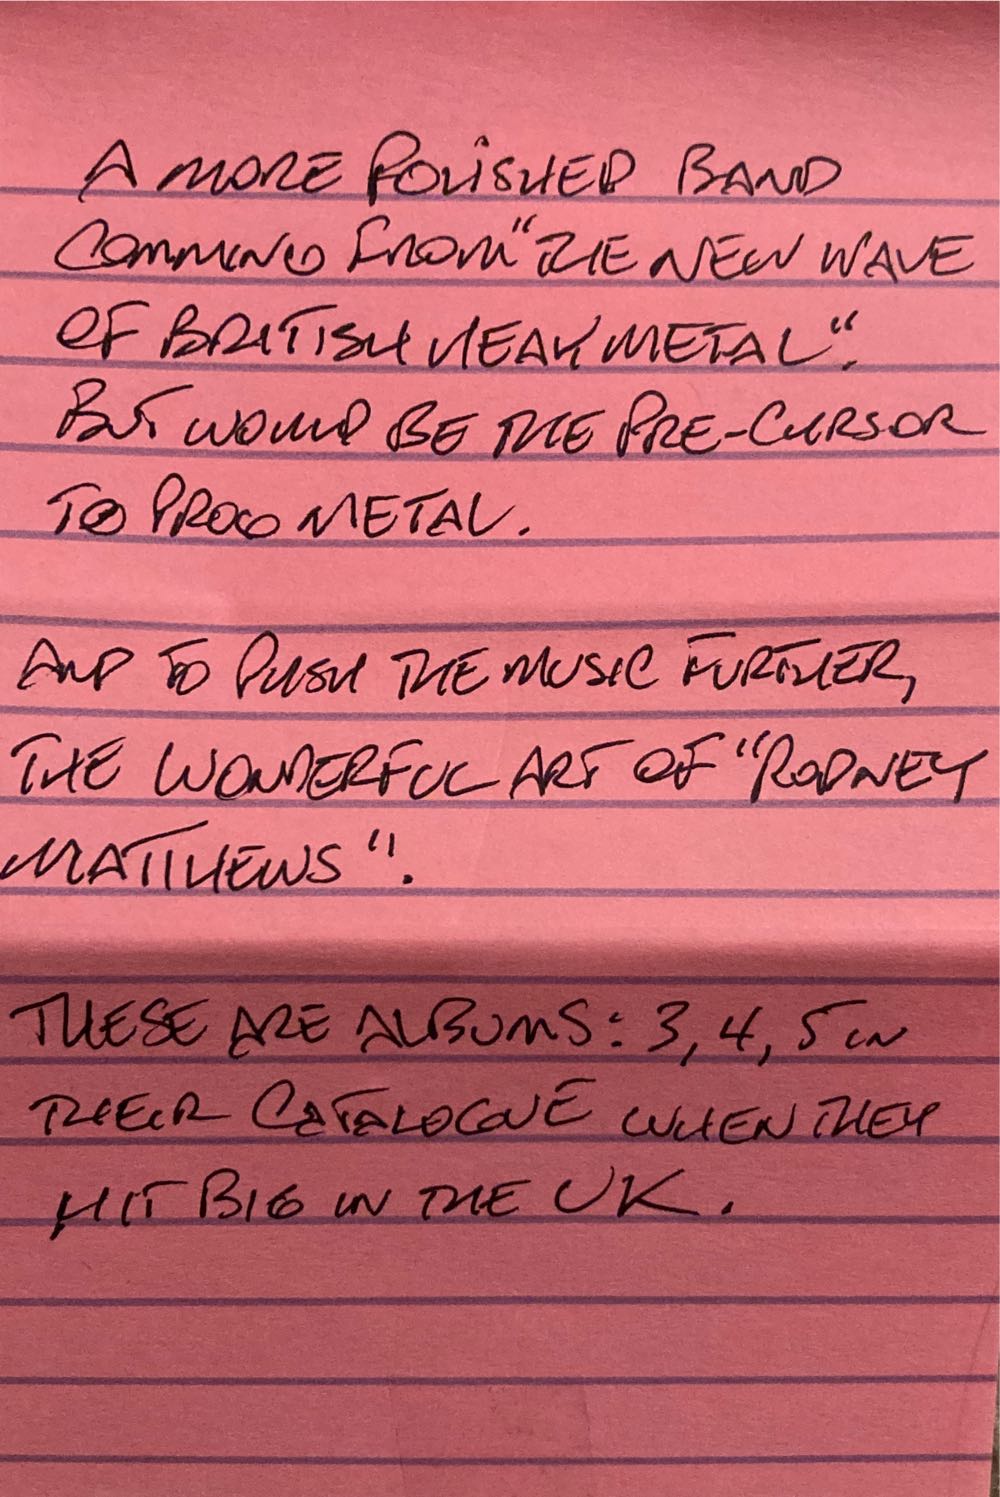 A MORE POLISHED BAND
COMMING FROM "THE NEW WAVE
OF BRITISH HEAVY METAL".
BUT WOULD BE THE PRE-CURSOR
TO PROG METAL.
AND TO PUSH THE MUSIC FURTHER,
THE WONDERFUL ART OF "RODNEY
MATTHEWS".
THESE ARE ALBUMS: 3, 4, 5 IN
THEIR CATALOGUE WHEN THEY
HIT BIG IN THE UK.